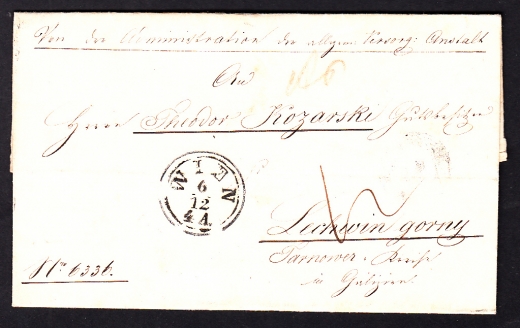 Von der Administration der allgem: Versorg: Anstalt
An
Herrn Theodor Kozarski Gutsbesitzer
WIEN
6
12
4 A
Lechwin gorny
Tarnower Kreise
in Galizien
No 6336.